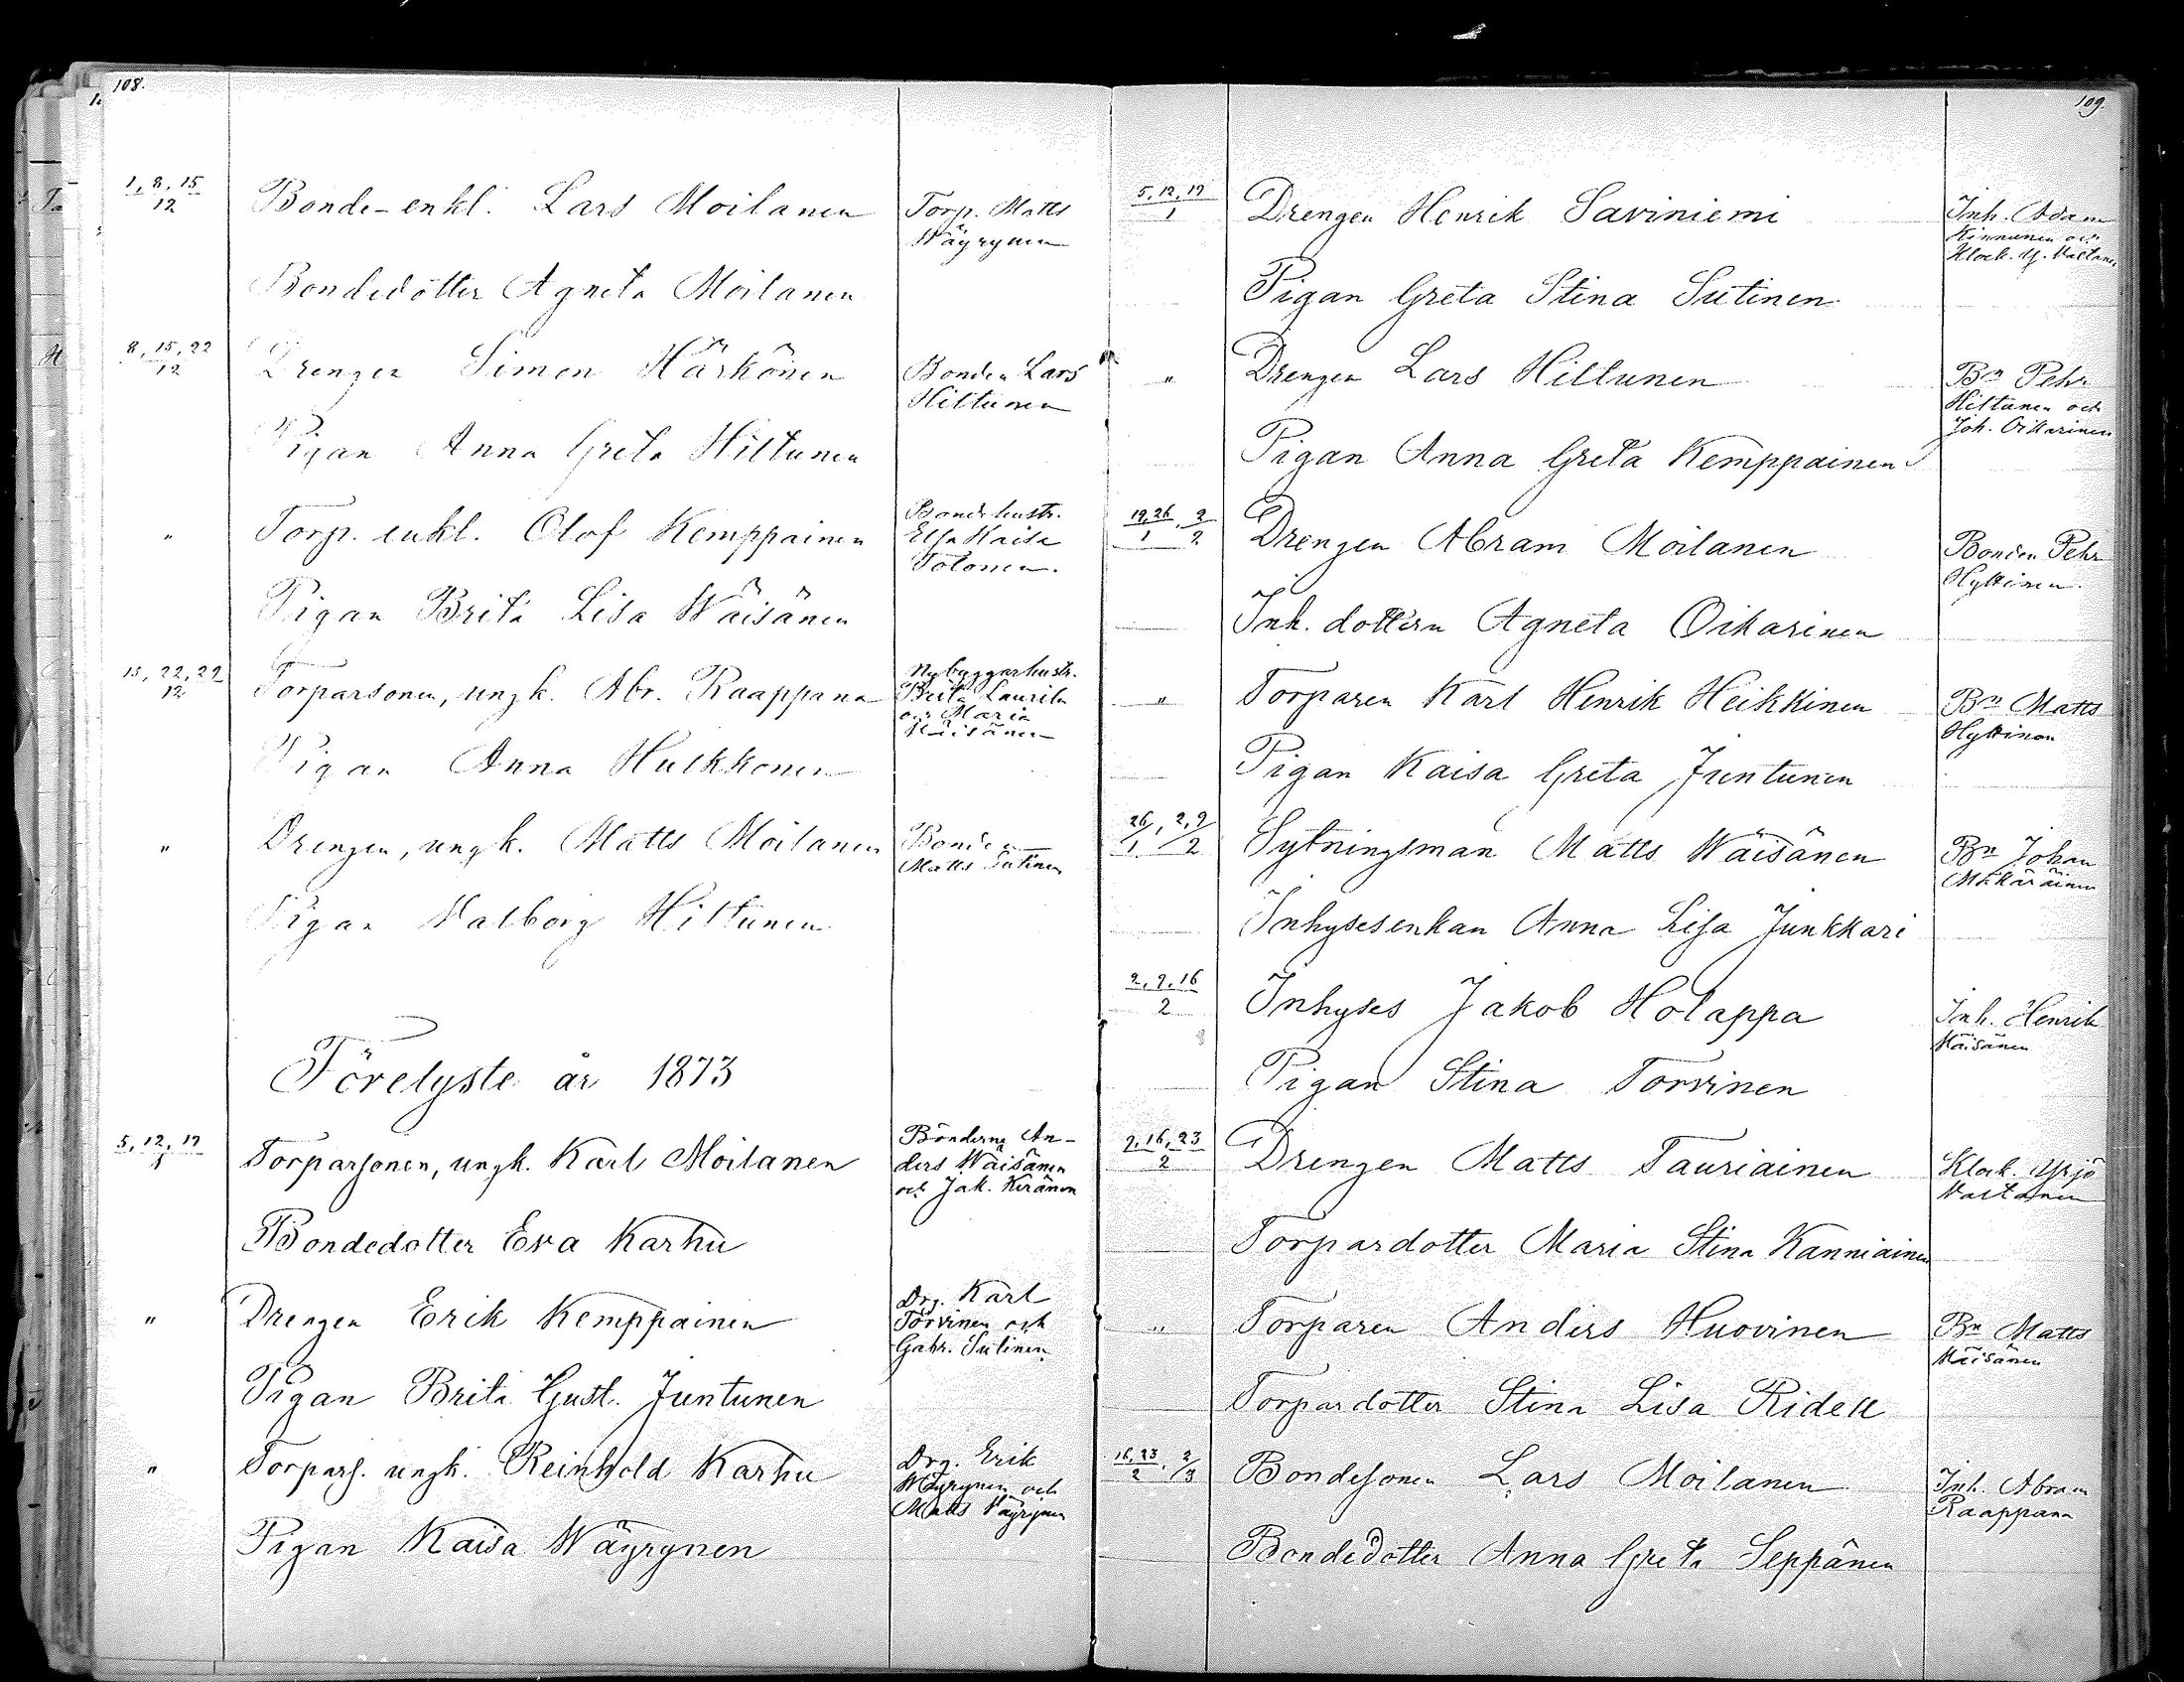 108.
1, 8, 15
12
Bonde-enkl. Lars Moilanen
Torp. Matts
Wäyrynen
Bondedotter Agneta Moilanen
8, 15, 22
12
Drengen Simon Härkönen
Bonden Lars
Hiltunen
Pigan Anna Greta Hiltunen
"
Torp. enkl. Olof Kemppainen
Bondehustr.
Elsa Kaisa
Tolonen.
Pigan Brita Lisa Wäisänen
15, 22, 22
12
Torparsonen, ungk. Abr. Raappana
Nybyggarhustr.
Brita Laurila
och Maria
Pigan Anna Hulkkonen
"
Drengen, ungk. Matts Moilanen
Bonden
Matts Sutinen
Pigan Valborg Hiltunen
Förelyste år 1873
5, 12, 19
1
Torparsonen, ungk. Karl Moilanen
Bönderne An-
ders Wäisänen
och Jak. Keränen
Bondedotter Eva Karhu
"
Drengen Erik Kemppainen
Drg. Karl
Torvinen och
Gabr. Sutinen
Pigan Brita Gust. Juntunen
"
Torpars. ungk. Reinhold Karhu
Drg. Erik
Wäyrynen och
Matts Väyrynen
Pigan Kaisa Wäyrynen
109.
5, 12, 19
1
Drengen Henrik Saviniemi
Inh. Adam
Kinnunen och
Klock. Y. Valtanen
Pigan Greta Stina Sutinen
"
Drengen Lars Hiltunen
Bn Pehr
Hiltunen och
Joh. Oikarinen
Pigan Anna Greta Kemppainen
19, 26 . 2
1 2
Drengen Abram Moilanen
Bonden Pehr
Hyttinen.
Inh. dottern Agneta Oikarinen
"
Torparen Karl Henrik Heikkinen
Bn Matts
Hyttinen
Pigan Kaisa Greta Juntunen
26/1, 2, 9/2
Sytningsman Matts Wäisänen
Bn Johan
Mikkäräinen
Inhysesenkan Anna Lisa Junkkari
2, 9, 16
2
Inhyses Jakob Holappa
Inh. Henrik
Väisänen
Pigan Stina Torvinen
9, 16, 23
2
Drengen Matts Tauriainen
Klock. Yrjö
Valtanen
Torpardotter Maria Stina Kanniainen
"
Torparen Anders Huovinen
Bn Matts
Väisänen
Torpardotter Stina Lisa Ridell
16, 23 . 2/3
2
Bondesonen Lars Moilanen
Inh. Abram
Raappana
Bondedotter Anna Greta Seppänen